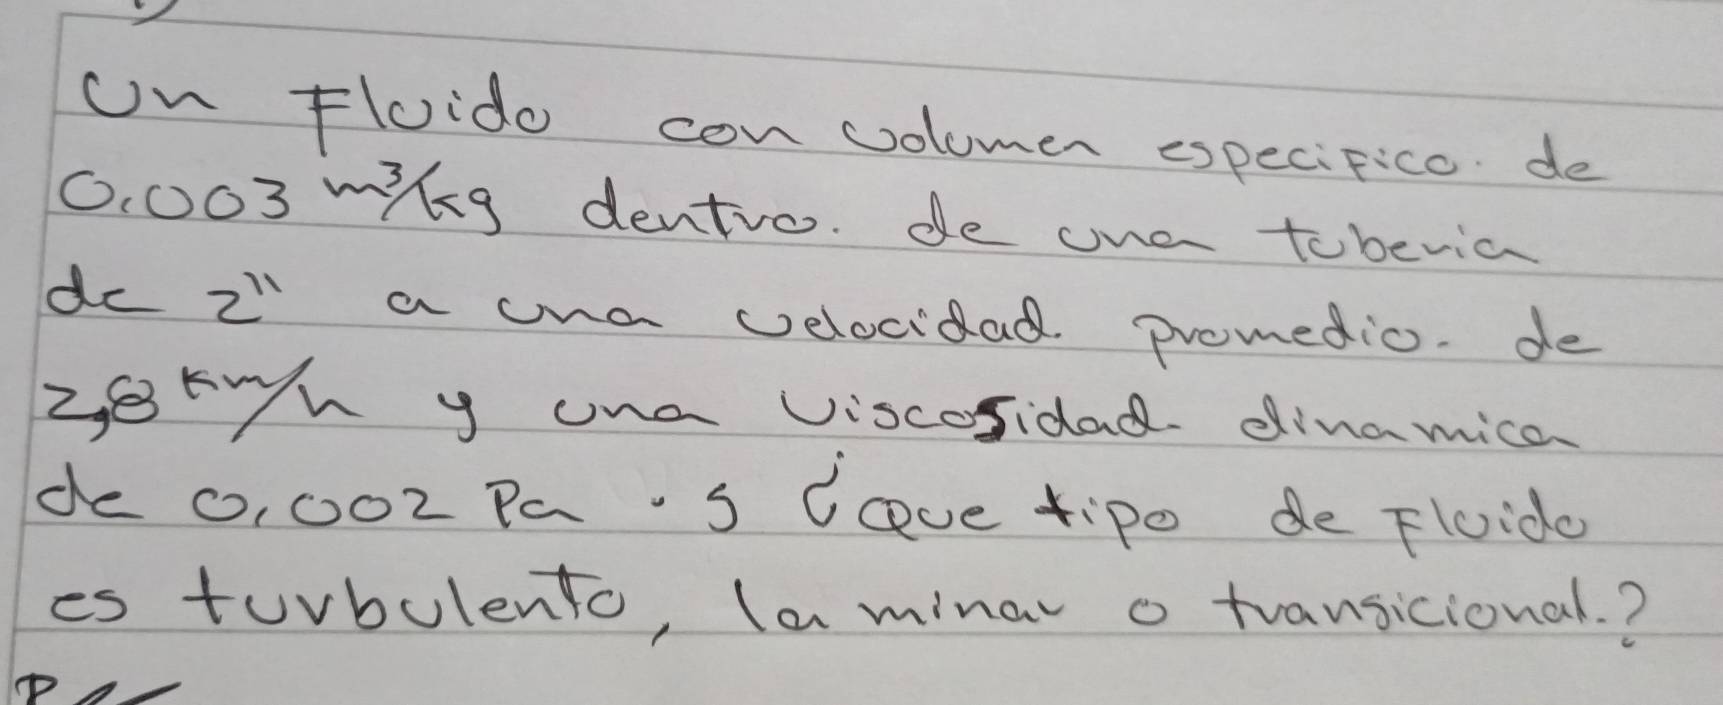 Un Fluido con volumen especifico. de
0.003 m³/kg dentro. de una tuberia
de 2" a una velocidad. promedio. de
2,8 Km/h y una viscosidad. dinamica
de 0,002 Pa . s ¿Que tipo de Fluido
es turbulento, laminar o transicional.?